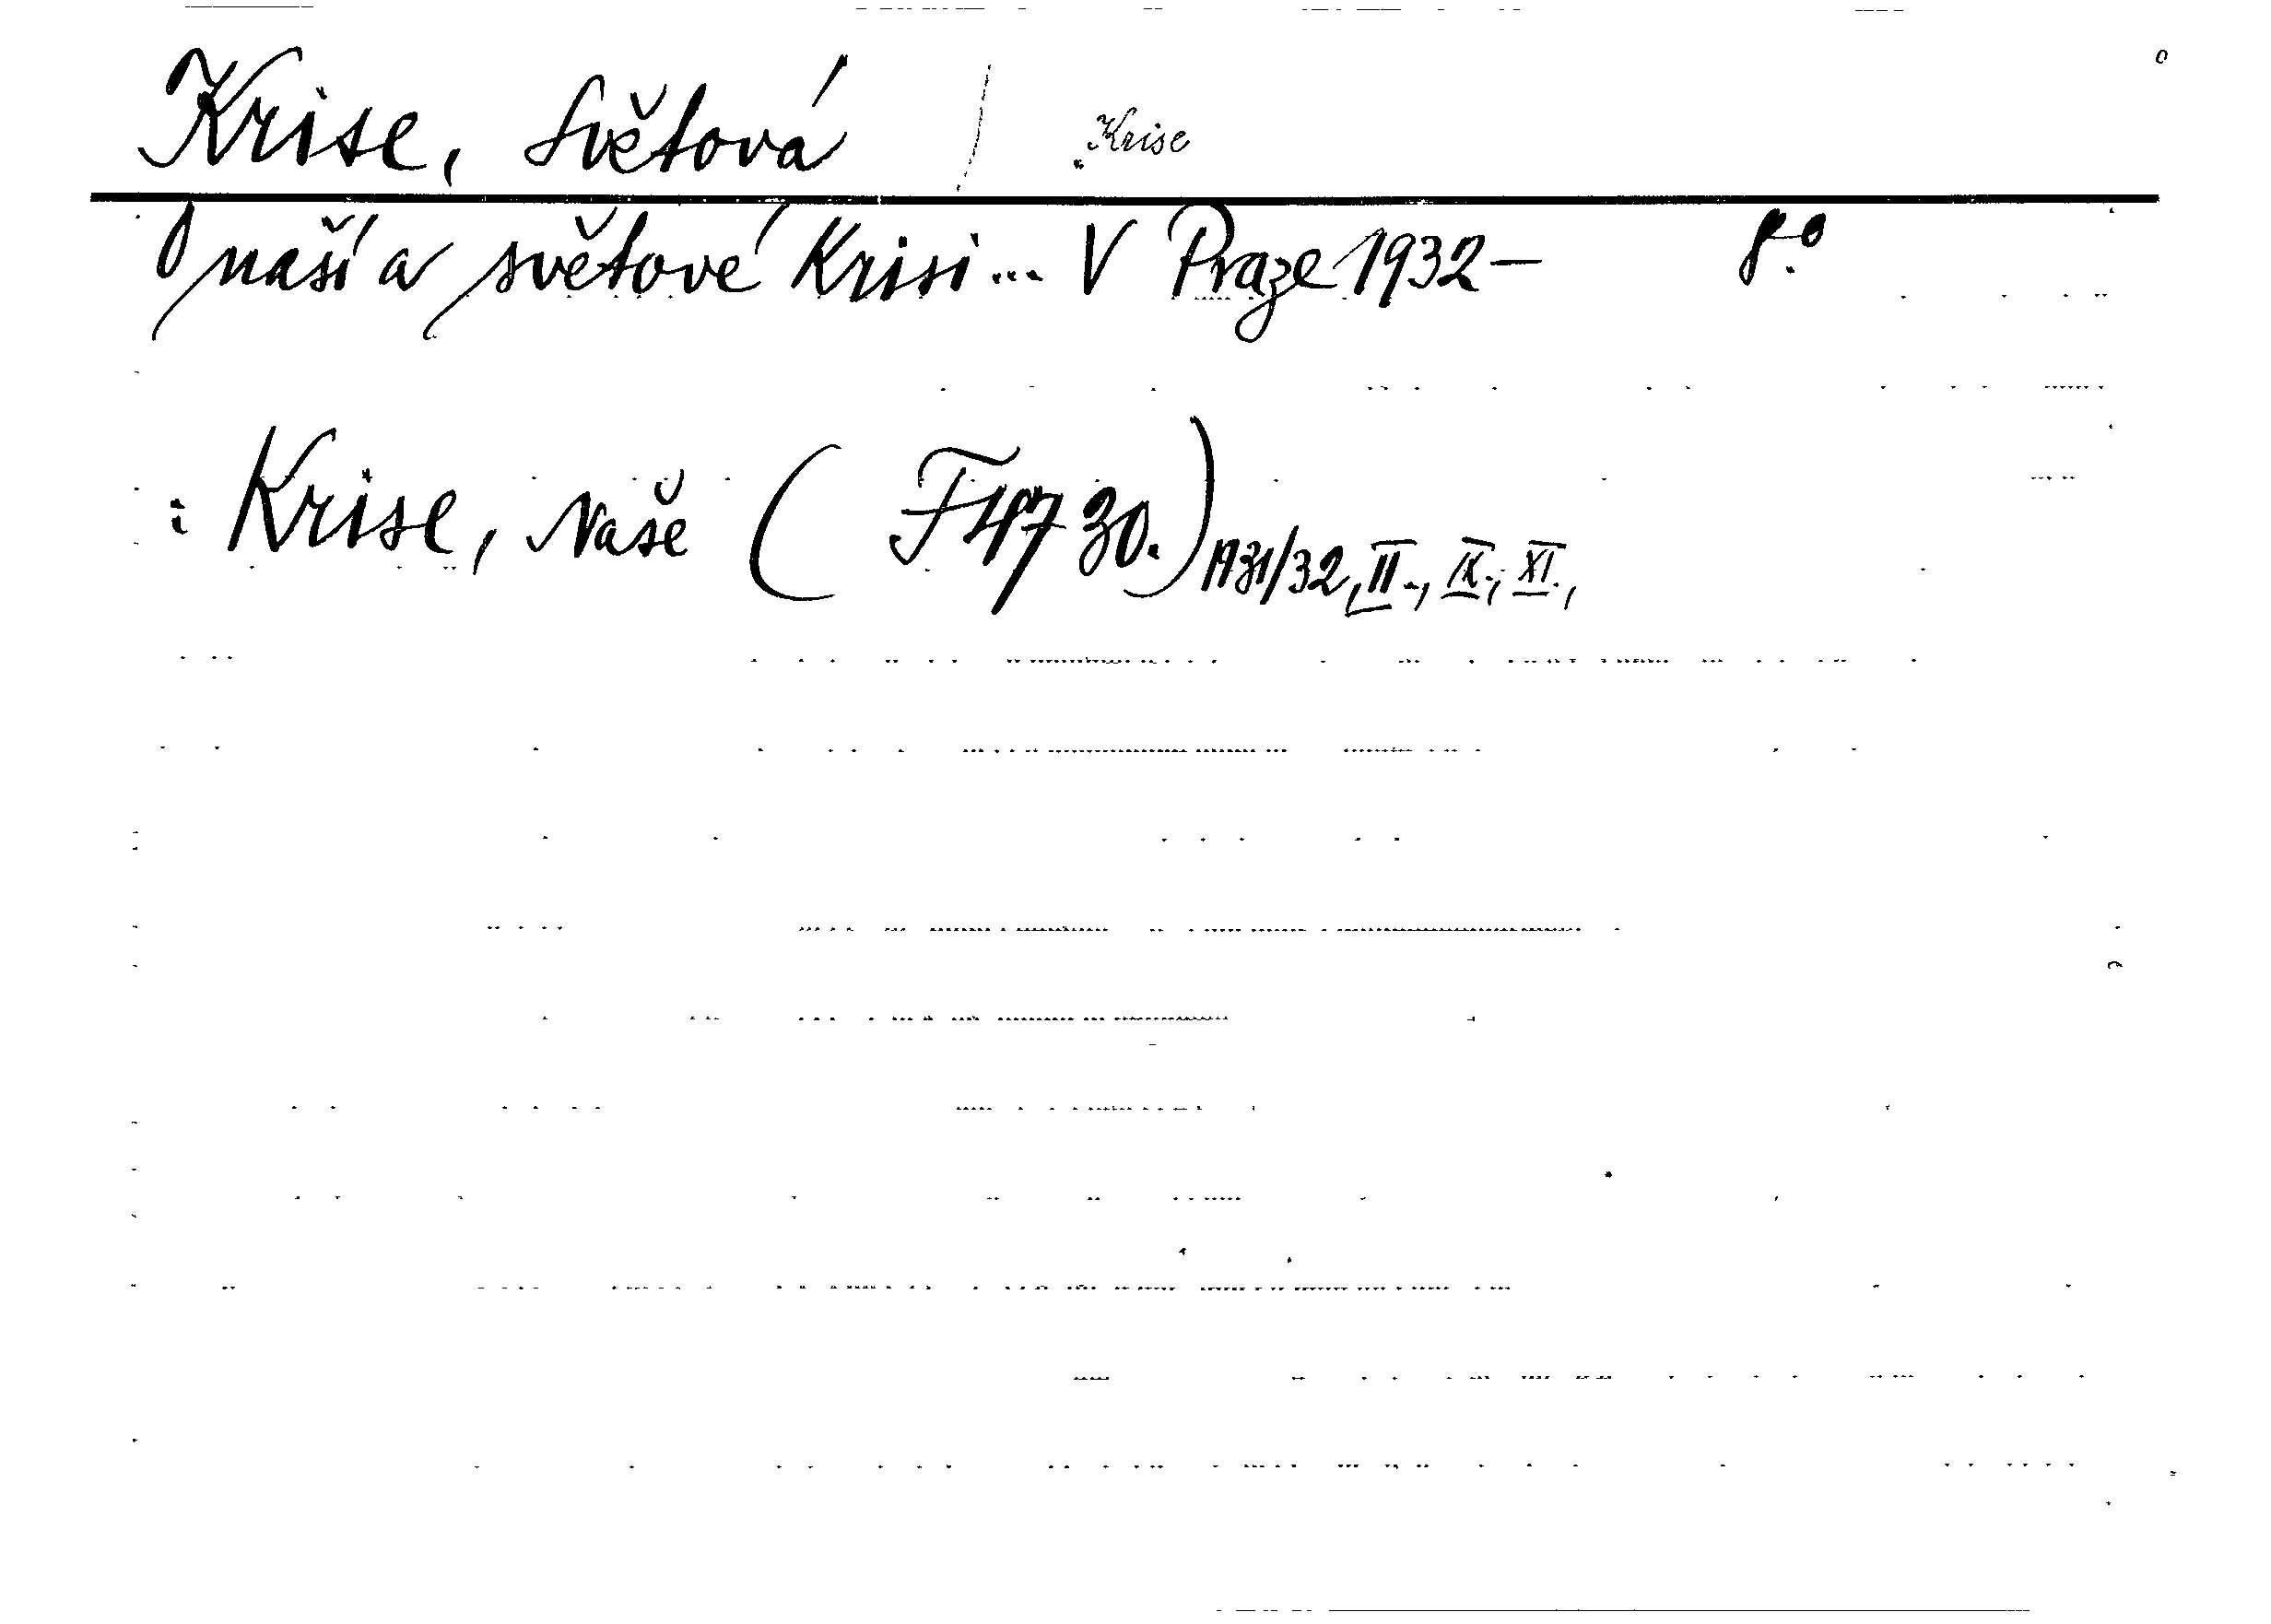 Krise, Světová / Krise
O naší a světové Krisi... V Praze 1932- 8.°
: Krise, Naše ( F 4730.) 1931/32, II., IX., XI.,